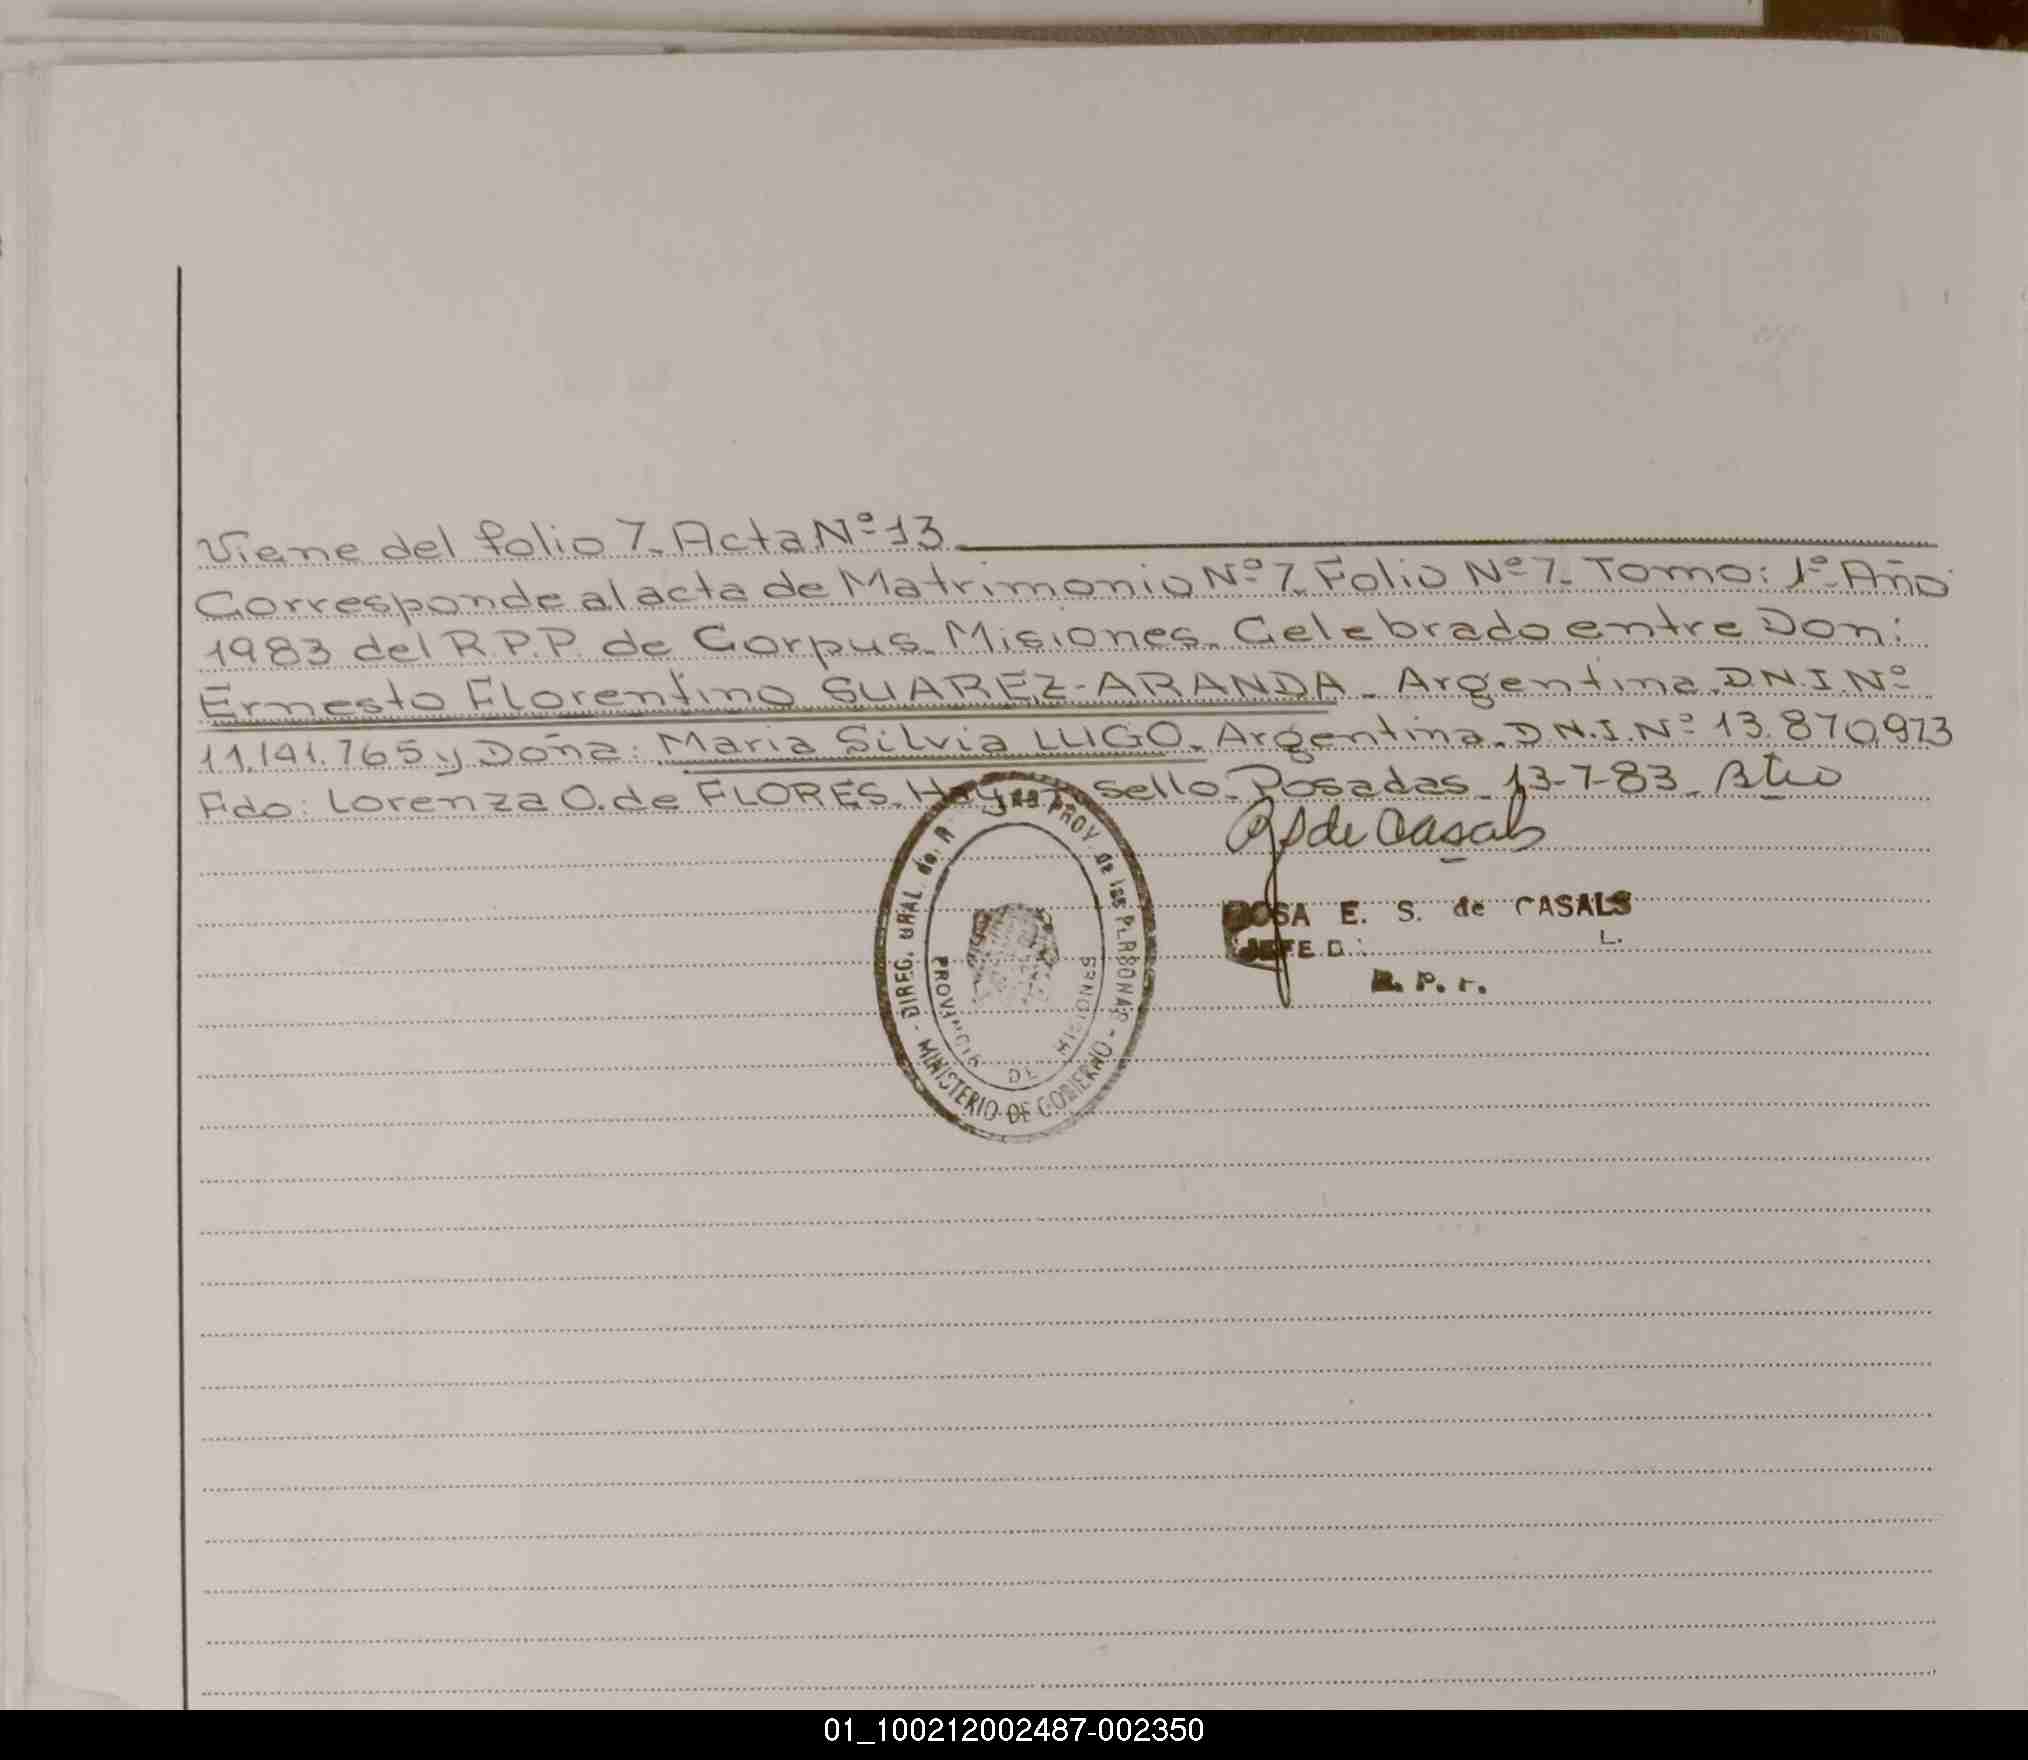 Viene del folio 7. Acta Nº 13
Corresponde al acta de Matrimonio Nº 7. Folio Nº 7. Tomo: 1º. Año
1983 del R.P.P. de Corpus. Misiones. Celebrado entre Don:
Ernesto Florentino SUAREZ-ARANDA. Argentina. D.N.I. Nº
11.141.765 y Doña: Maria Silvia LUGO. Argentina. D.N.I. Nº 13.870.973
Fdo: Lorenza O. de FLORES. Hay sello. Posadas. 13-7-83.
DIREC. GRAL. de PROV. de las PERSONAS - MINISTERIO DE GOBIERNO -
PROVINCIA DE MISIONES
de Casals
ROSA E. S. de CASALS
JEFE D.
R. P.
01_100212002487-002350